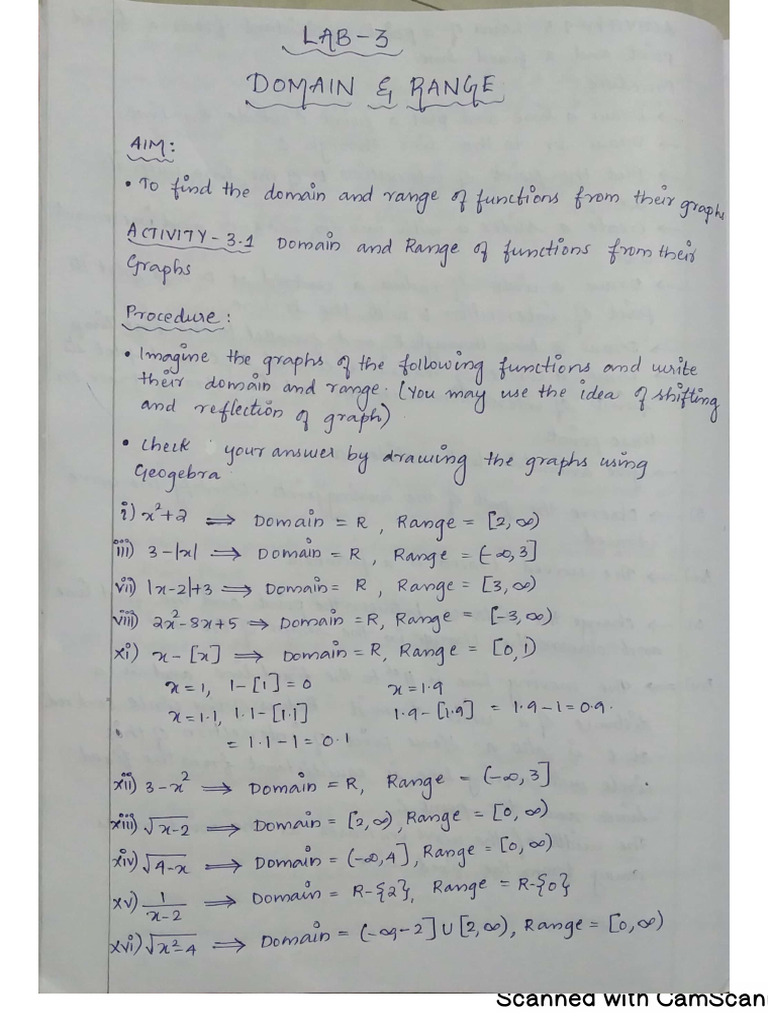 LAB-3
DOMAIN & RANGE
AIM:
• To find the domain and range of functions from their graphs
ACTIVITY-3.1 Domain and Range of functions from their
Graphs
Procedure:
• Imagine the graphs of the following functions and write
their domain and range. (You may use the idea of shifting
and reflection of graph)
• Check your answer by drawing the graphs using
Geogebra.
i) x²+2 ⟹ Domain = R, Range = [2, ∞)
iii) 3-|x| ⟹ Domain = R, Range = (-∞, 3]
vii) |x-2|+3 ⟹ Domain = R, Range = [3, ∞)
viii) 2x²-8x+5 ⟹ Domain = R, Range = [-3, ∞)
xi) x-[x] ⟹ Domain = R, Range = [0, 1)
x=1, 1-[1]=0 x=1.9
x=1.1, 1.1-[1.1] 1.9-[1.9] = 1.9-1=0.9.
= 1.1-1=0.1
xii) 3-x² ⟹ Domain = R, Range = (-∞, 3]
xiii) √x-2 ⟹ Domain = [2, ∞), Range = [0, ∞)
xiv) √4-x ⟹ Domain = (-∞, 4], Range = [0, ∞)
xv) 1/x-2 ⟹ Domain = R-{2}, Range = R-{0}
xvi) √x²-4 ⟹ Domain = (-∞-2] U [2, ∞), Range = [0, ∞)
Scanned with CamScan